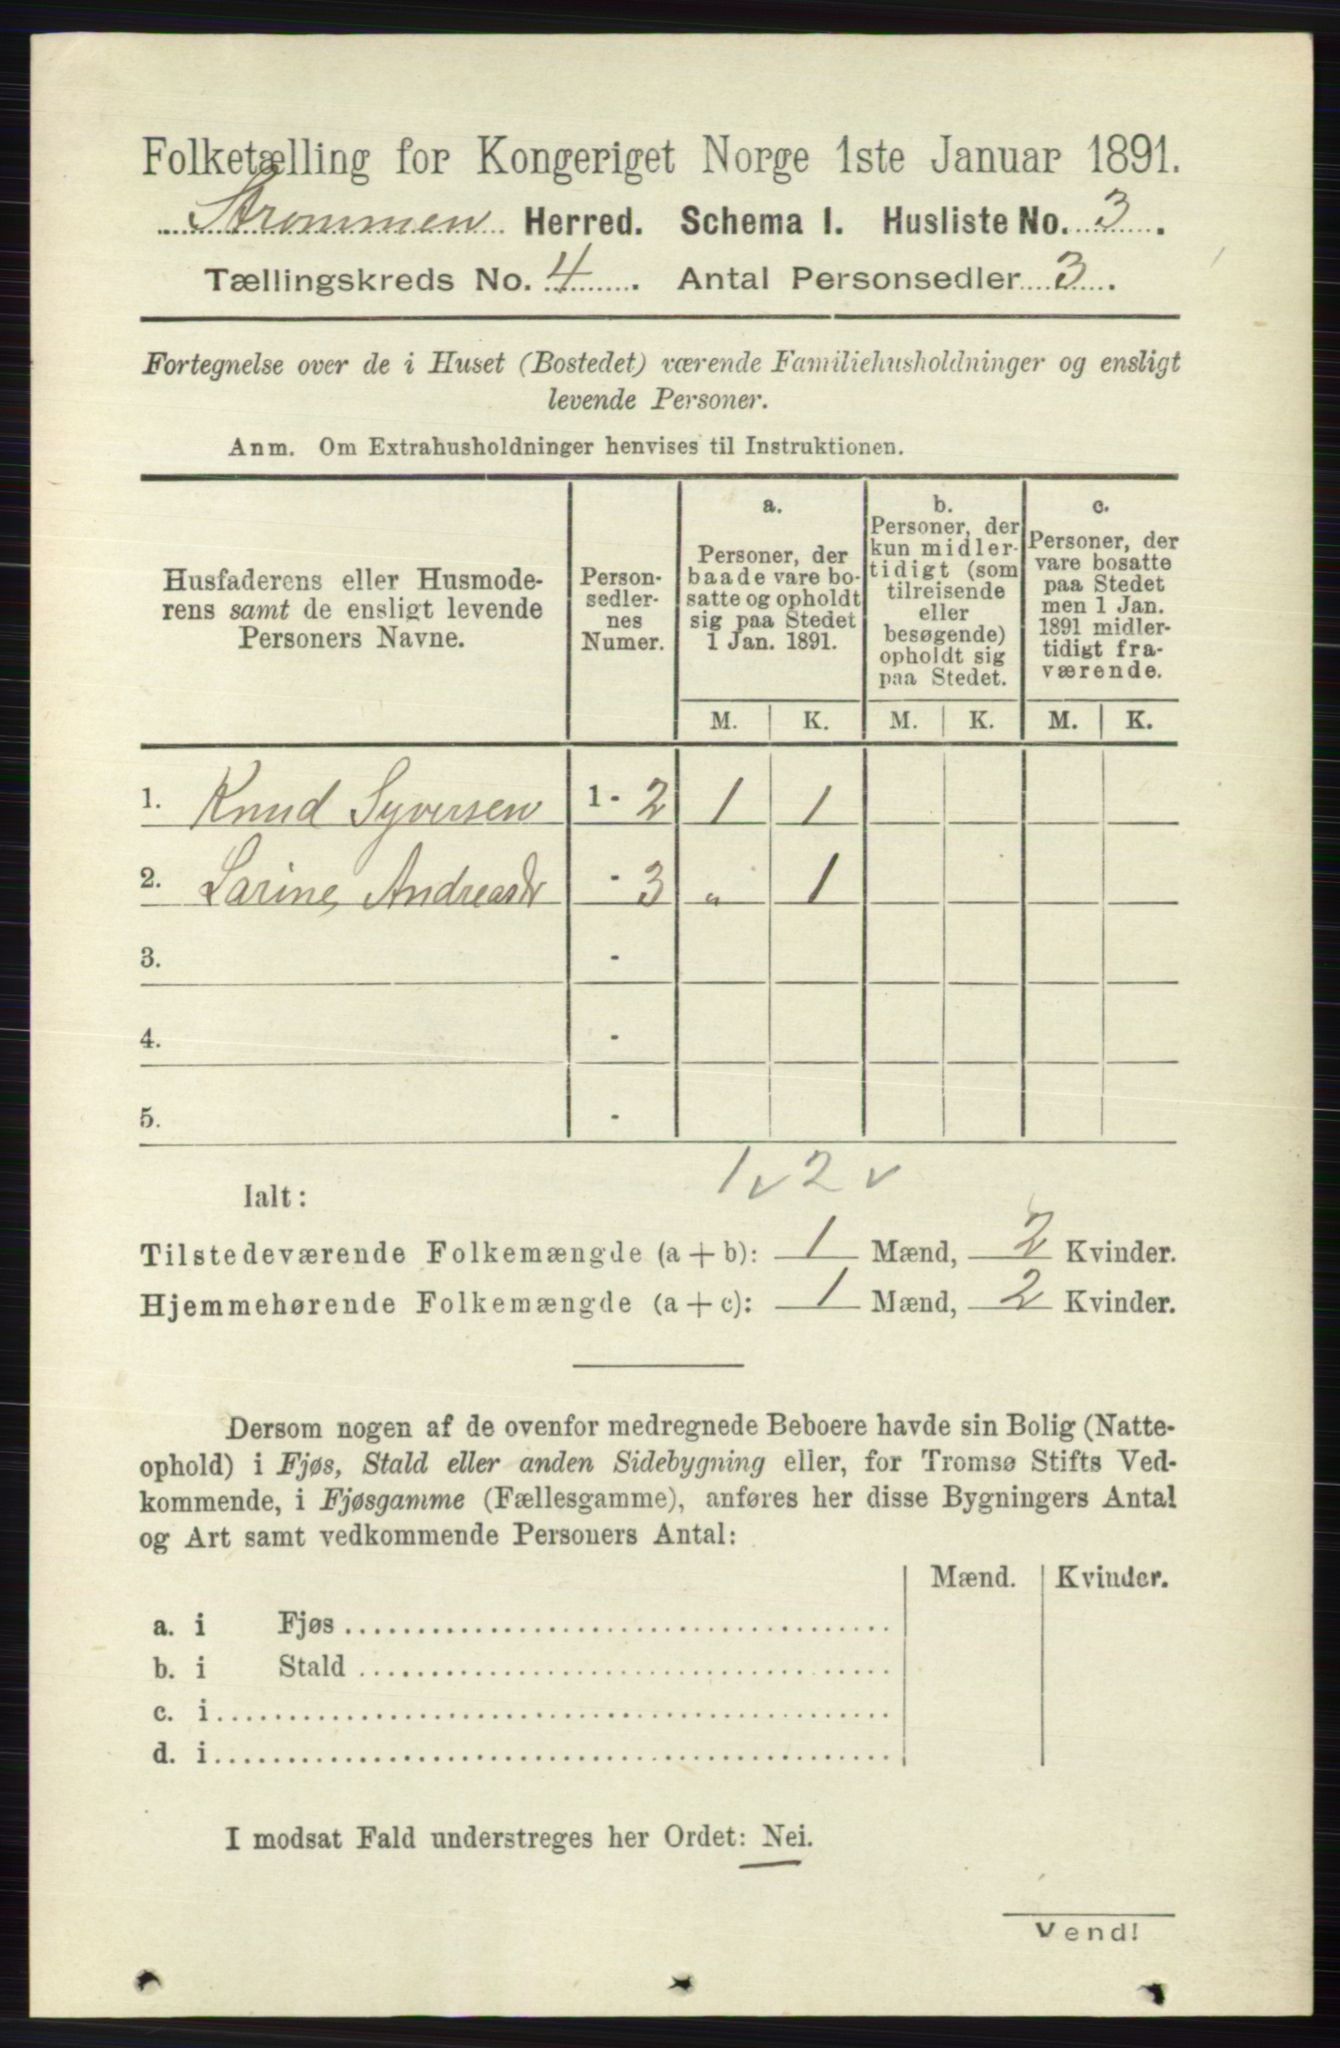 Folketælling for Kongeriget Norge 1ste Januar 1891.
Strømmen Herred. Schema I. Husliste No. 3.
Tællingskreds No. 4. Antal Personsedler 3.
Fortegnelse over de i Huset (Bostedet) værende Familiehusholdninger og ensligt
levende Personer.
Anm. Om Extrahusholdninger henvises til Instruktionen.
Husfaderens eller Husmode-
rens samt de ensligt levende
Personers Navne.
Person-
sedler-
nes
Numer.
a.
Personer, der
baade vare bo-
satte og opholdt
sig paa Stedet
1 Jan. 1891.
b.
Personer, der
kun midler-
tidigt (som
tilreisende
eller
besøgende)
opholdt sig
paa Stedet.
c.
Personer, der
vare bosatte
paa Stedet
men 1 Jan.
1891 midler-
tidigt fra-
værende.
M. K. M. K. M. K.
1. Knud Syversen 1 - 2 1 1
2. Larine Andreasdr - 3 „ 1
3. -
4. -
5. -
1 v 2 v
Ialt:
Tilstedeværende Folkemængde (a + b): 1 Mænd, 2 Kvinder.
Hjemmehørende Folkemængde (a + c): 1 Mænd, 2 Kvinder.
Dersom nogen af de ovenfor medregnede Beboere havde sin Bolig (Natte-
ophold) i Fjøs, Stald eller anden Sidebygning eller, for Tromsø Stifts Ved-
kommende, i Fjøsgamme (Fællesgamme), anføres her disse Bygningers Antal
og Art samt vedkommende Personers Antal:
Mænd. Kvinder.
a. i Fjøs
b. i Stald
c. i
d. i
I modsat Fald understreges her Ordet: Nei.
Vend!